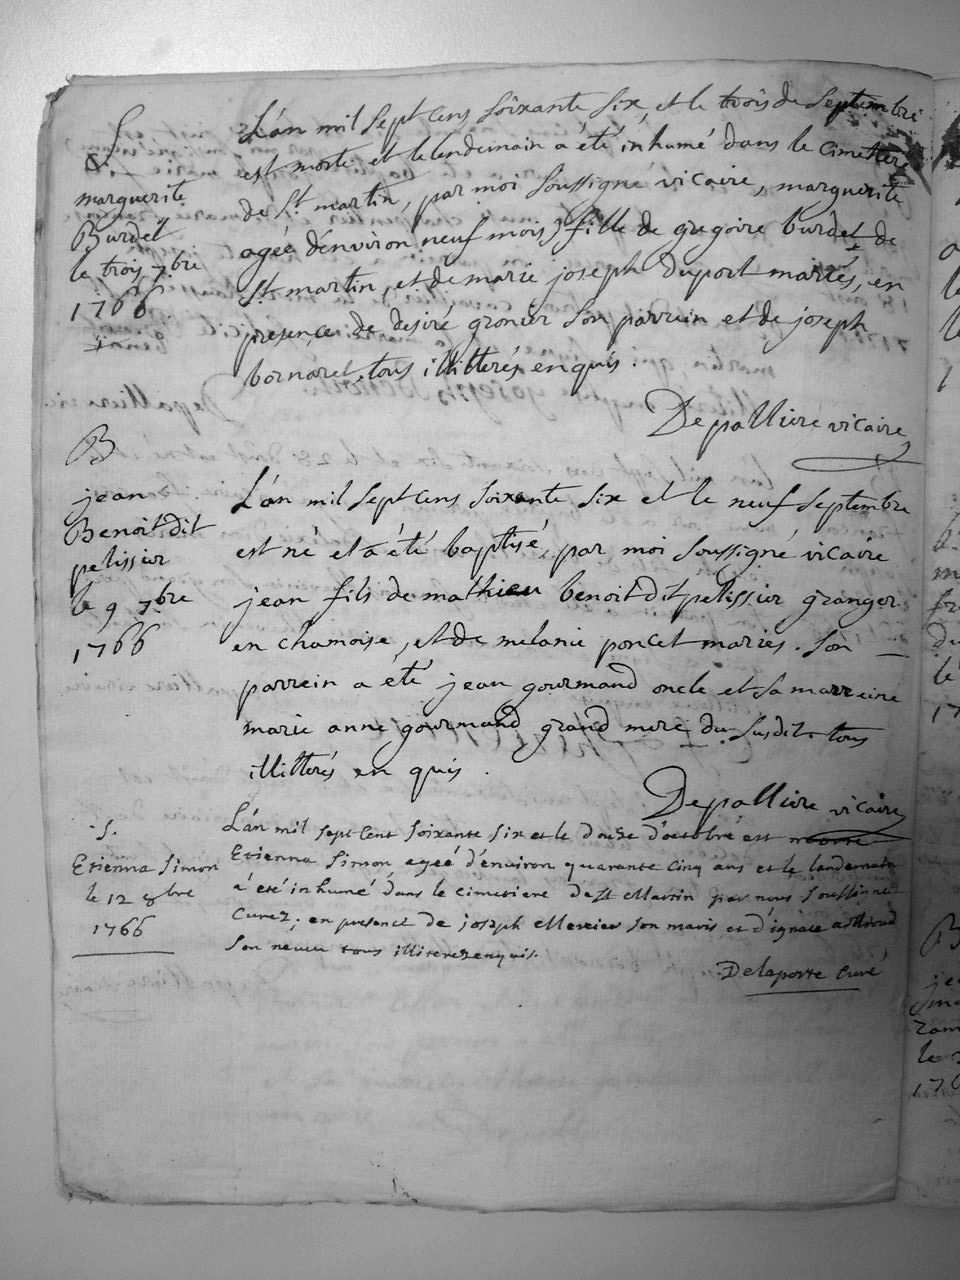 S.
marguerite
Burdet
le trois 7bre
1766
L'an mil sept cens soixante six et le trois de Septembre
est morte et le lendemain a été inhumé dans le cimetiere
de St. martin, par moi soussigné vicaire, marguerite
agée d'environ neuf mois, fille de gregoire burdet de
St. martin, et de marie joseph duport mariés, en
presence de desiré gronier son parrein et de joseph
bornaret, tous illitterés enquis.
Depalliere vicaire
B
jean
Benoit dit
pelissier
le 9 7bre
1766
L'an mil sept cens soixante six et le neuf septembre
est né et a été baptisé, par moi soussigné vicaire
jean fils de mathieu benoit dit pelissier granger
en chamoise, et de melanie poncet mariés. son
parrein a été jean gourmand oncle et sa marreine
marie anne gourmand grand mere du susdit tous
illitterés en quis.
Depalliere vicaire
S.
Etienna Simon
le 12 8bre
1766
L'an mil sept cent soixante six et le douze d'octobre est morte
Etienna Simon ageé d'environ quarante cinq ans et le landemain
a été inhumé dans le cimetiere de St Martin par nous soussinné
Curez, en presence de joseph Mercier son maris et d'ignace
son neveu tous illiterez enquis.
Delaporte Curé